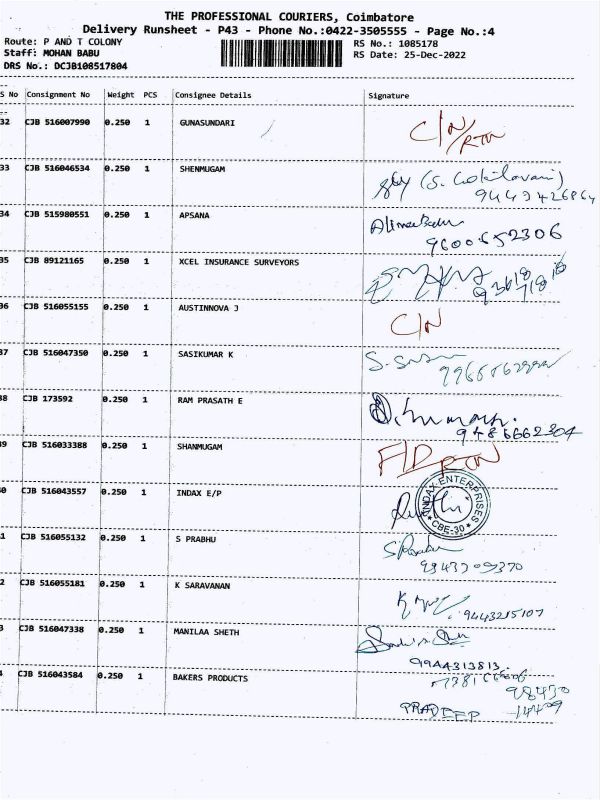 THE PROFESSIONAL COURIERS, Coimbatore
Delivery Runsheet - P43 - Phone No.:0422-3505555 - Page No.:4
Route: P AND T COLONY RS No.: 1085178
Staff: MOHAN BABU RS Date: 25-Dec-2022
DRS No.: DCJB108517804
S No Consignment No Weight PCS Consignee Details Signature
32 CJB 516007990 0.250 1 GUNASUNDARI C/N/RTN
33 CJB 516046534 0.250 1 SHENMUGAM
9443426864
34 CJB 515980551 0.250 1 APSANA
9600652306
35 CJB 89121165 0.250 1 XCEL INSURANCE SURVEYORS
36 CJB 516055155 0.250 1 AUSTINNOVA J C/N
37 CJB 516047350 0.250 1 SASIKUMAR K
38 CJB 173592 0.250 1 RAM PRASATH E
9486662304
39 CJB 516033388 0.250 1 SHANMUGAM F/D RTN
0 CJB 516043557 0.250 1 INDAX E/P INDAX ENTERPRISES CBE-30
1 CJB 516055132 0.250 1 S PRABHU
9343709370
2 CJB 516055181 0.250 1 K SARAVANAN 9443215107
3 CJB 516047338 0.250 1 MANILAA SHETH
9944313813.
CJB 516043584 0.250 1 BAKERS PRODUCTS 98430
PRADEEP 14409